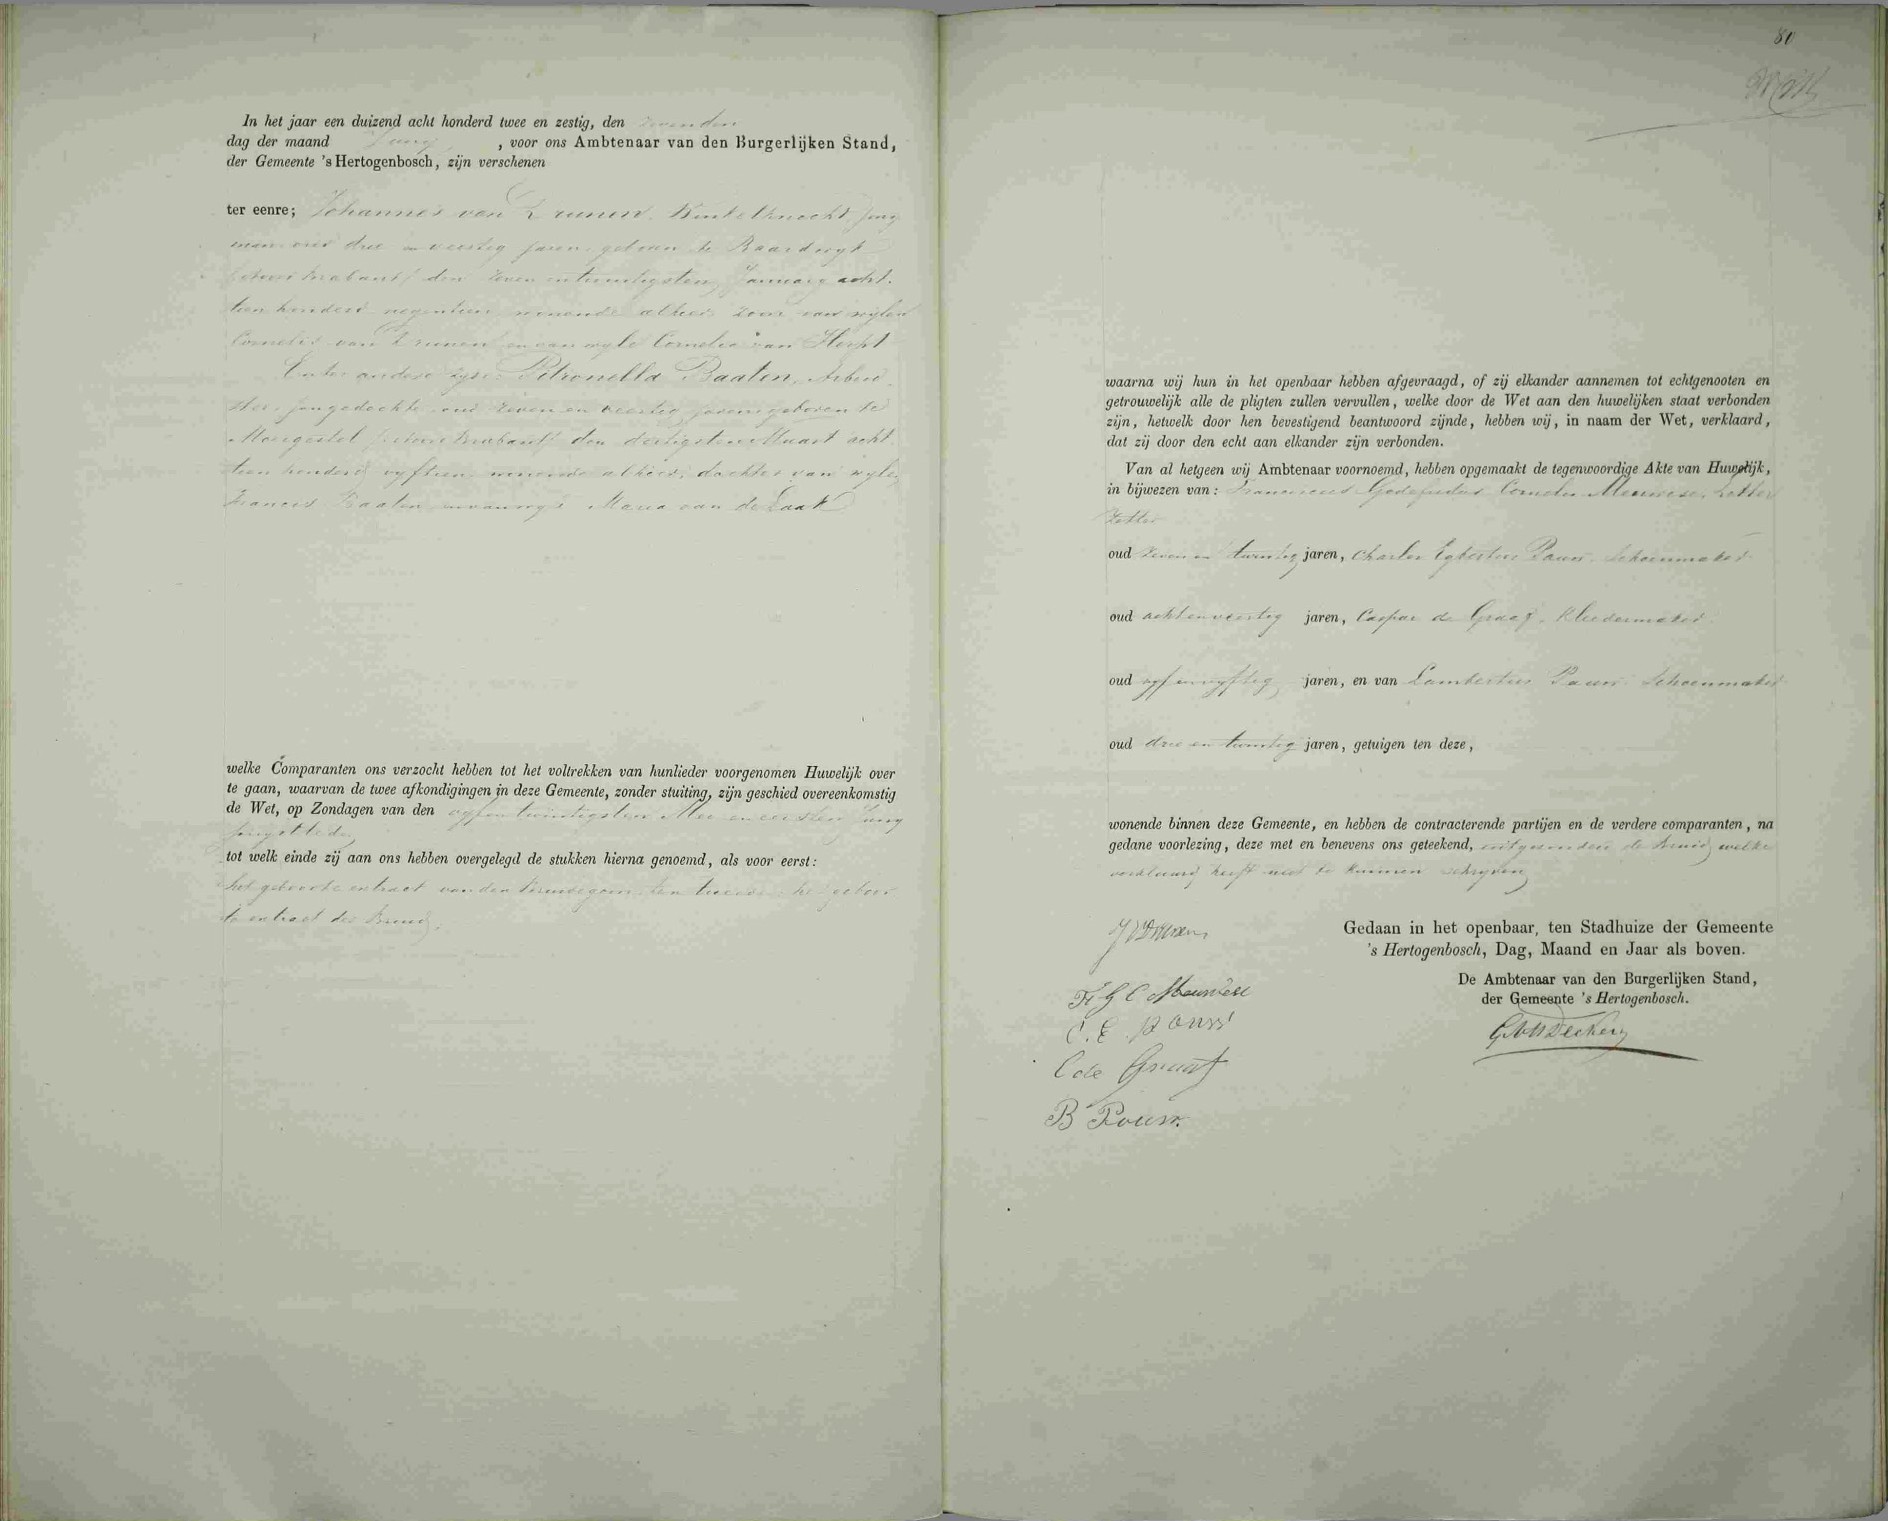 In het jaar een duizend acht honderd twee en zestig, den zevenden
dag der maand Juny , voor ons Ambtenaar van den Burgerlijken Stand,
der Gemeente 's Hertogenbosch, zijn verschenen
ter eenre; Johannes van Drunen, Winkelknecht, jong
man oud drie en veertig jaren, geboren te Baardwyk
den zeven en twintigsten January acht-
tien honderd negentien wonende alhier zoon van wylen
Cornelis van Drunen en van wyle Cornelia van Herpt
Ter andere zyde: Petronella Baaten, Arbeid-
ster, jongedochter oud zeven en veertig jaren geboren te
Moergestel den dertigsten Maart acht-
tien honderd vyftien wonende alhier, dochter van wylen
Francis Baaten en van wyle Maria van de Laak
welke Comparanten ons verzocht hebben tot het voltrekken van hunlieder voorgenomen Huwelijk over
te gaan, waarvan de twee afkondigingen in deze Gemeente, zonder stuiting, zijn geschied overeenkomstig
de Wet, op Zondagen van den vyfentwintigsten Mei en eersten Juny
jongstleden
tot welk einde zij aan ons hebben overgelegd de stukken hierna genoemd, als voor eerst:
het geboorte extract van den Bruidegom, ten tweede het geboor
te extract der Bruid,
80
waarna wij hun in het openbaar hebben afgevraagd, of zij elkander aannemen tot echtgenooten en
getrouwelijk alle de pligten zullen vervullen, welke door de Wet aan den huwelijken staat verbonden
zijn, hetwelk door hen bevestigend beantwoord zijnde, hebben wij, in naam der Wet, verklaard,
dat zij door den echt aan elkander zijn verbonden.
Van al hetgeen wij Ambtenaar voornoemd, hebben opgemaakt de tegenwoordige Akte van Huwelijk,
in bijwezen van: Franciscus Godefridus Cornelis Meuwese, Letter
zetter
oud zeven en twintig jaren, Charles Egbertus Pauw Schoenmaker
oud achtenveertig jaren, Caspar de Graaf, Kleedermaker
oud vyfenvyftig jaren, en van Lambertus Pauw Schoenmaker
oud drie en twintig jaren, getuigen ten deze,
wonende binnen deze Gemeente, en hebben de contracterende partijen en de verdere comparanten, na
gedane voorlezing, deze met en benevens ons geteekend, uitgezonderd de Bruid welke
verklaard heeft niet te kunnen schryven
J V Drunen
F G C Meuwese
C. E. Pouw
C de Graaf
B Pouw.
Gedaan in het openbaar, ten Stadhuize der Gemeente
's Hertogenbosch, Dag, Maand en Jaar als boven.
De Ambtenaar van den Burgerlijken Stand,
der Gemeente 's Hertogenbosch.